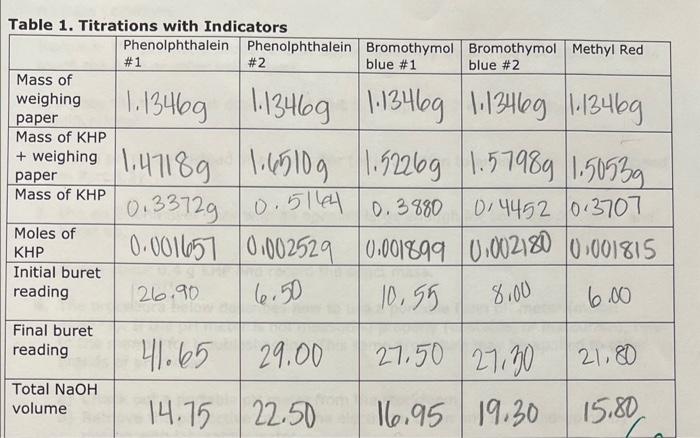 Table 1. Titrations with Indicators
Phenolphthalein #1 Phenolphthalein #2 Bromothymol blue #1 Bromothymol blue #2 Methyl Red
Mass of weighing paper 1.1346g 1.1346g 1.1346g 1.1346g 1.1346g
Mass of KHP + weighing paper 1.4718g 1.6510g 1.5226g 1.5798g 1.5053g
Mass of KHP 0.3372g 0.5164 0.3880 0.4452 0.3707
Moles of KHP 0.001657 0.002529 0.001899 0.002180 0.001815
Initial buret reading 26.90 6.50 10.55 8.00 6.00
Final buret reading 41.65 29.00 27.50 27.30 21.80
Total NaOH volume 14.75 22.50 16.95 19.30 15.80